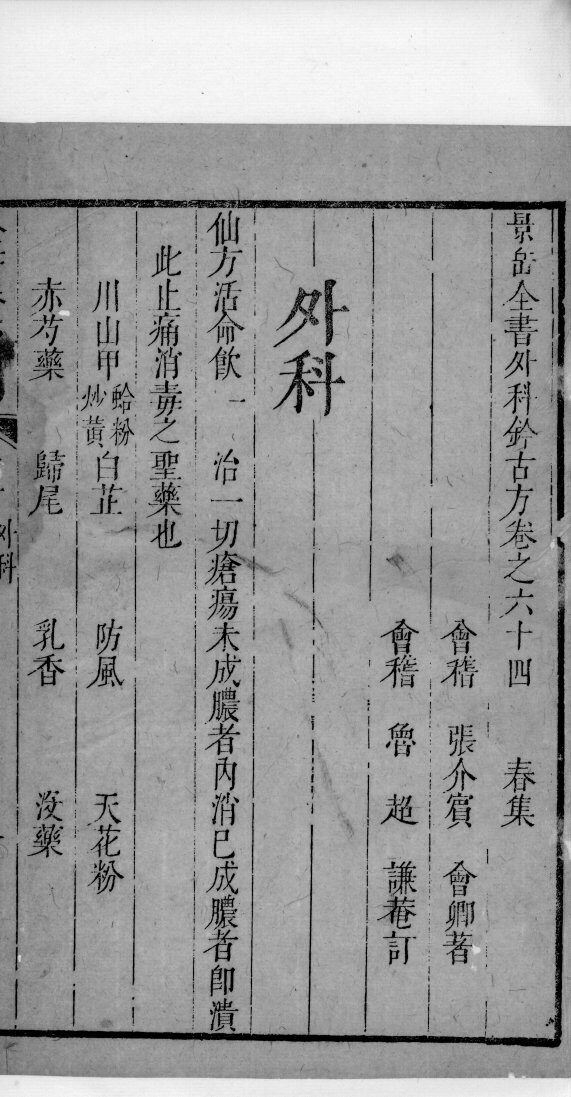 景岳全書外科鈐古方卷之六十四 春集
會稽 張介賓 會卿著
會稽 魯 超 謙菴訂
外科
仙方活命飲一 治一切瘡瘍未成膿者內消已成膿者卽潰
此止痛消毒之聖藥也
川山甲蛤粉炒黃 白芷 防風 天花粉
赤芍藥 歸尾 乳香 沒藥
外科